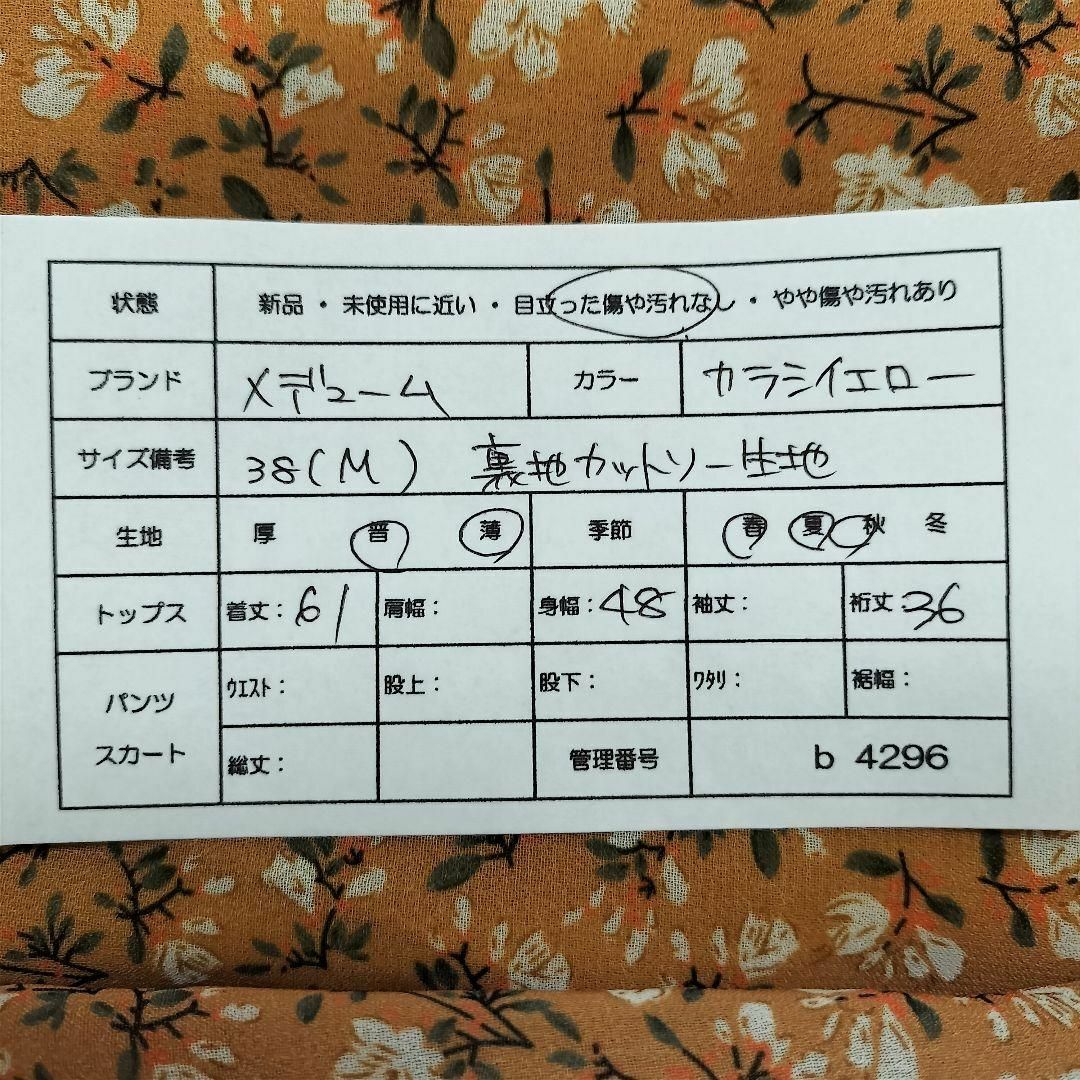 状態 新品 ・ 未使用に近い ・ 目立った傷や汚れなし ・ やや傷や汚れあり
ブランド メデューム カラー カラシイエロー
サイズ備考 38(M) 裏地カットソー生地
生地 厚 普 薄 季節 春 夏 秋 冬
トップス 着丈：61 肩幅： 身幅：48 袖丈： 裄丈：36
パンツ ウエスト： 股上： 股下： ワタリ： 裾幅：
スカート 総丈： 管理番号 b 4296